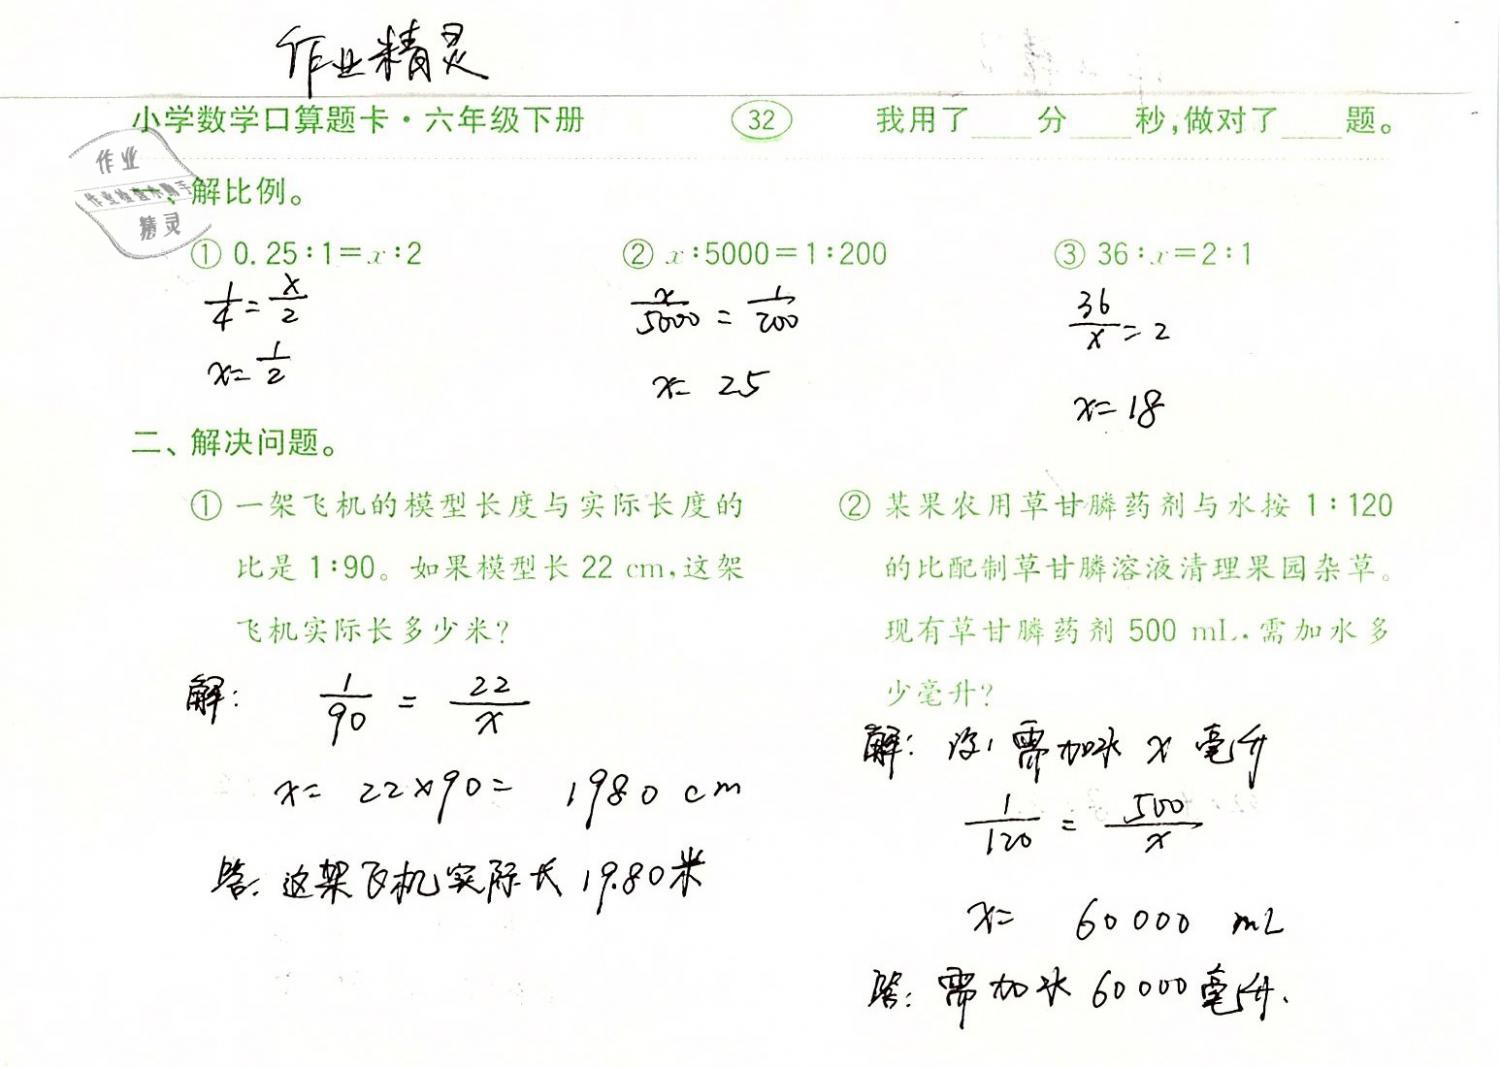 作业精灵
小学数学口算题卡·六年级下册 32 我用了____分____秒,做对了____题。
作业
作业检查小助手
精灵
一、解比例。
① 0.25:1=x:2 ② x:5000=1:200 ③ 36:x=2:1
1/4=x/2 x/5000=1/200 36/x=2
x=1/2 x=25 x=18
二、解决问题。
① 一架飞机的模型长度与实际长度的
比是1:90。如果模型长22 cm,这架
飞机实际长多少米?
解: 1/90=22/x
x=22×90=1980cm
答.这架飞机实际长19.80米
② 某果农用草甘膦药剂与水按1:120
的比配制草甘膦溶液清理果园杂草。
现有草甘膦药剂500 mL,需加水多
少毫升?
解:设:需加水x毫升
1/120=500/x
x=60000mL
答:需加水60000毫升.